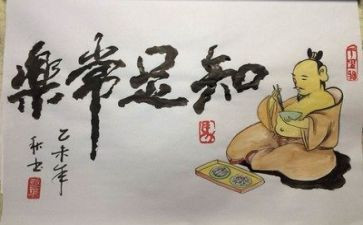 知足常樂
乙未年
秋書